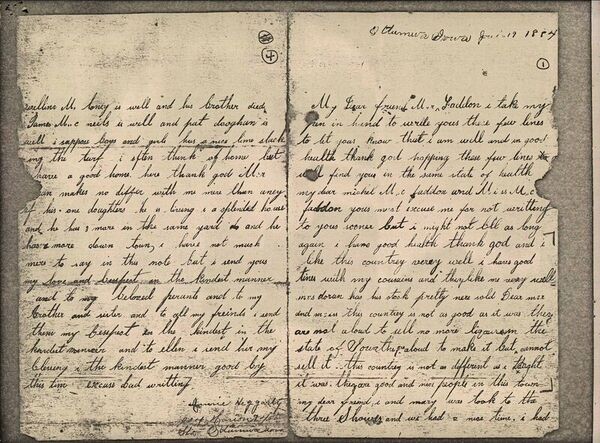 4
Collins M. Coney is well and his brother died
James M.c neils is well and pat dooghan is
well i suppose Boy and girls has a nice time stack
ing the turf i often think of home but
i have a good home here thank god M.r
makes no differ with me more than aney
of his one daughters he is living i a splended house
and he has 3 more in the same yard and he
has 2 more down town, i have not much
more to say in this note but i send you
my love and Cespect in the kindest manner
and to my beloved perants and to my
Brother and sister and to all my freinds i send
them my Cespect in the kindest in the
kindest manner and to ellen i send her my
Blessing i the kindest manner good by
this tim excuse bad writting
Annie Heggarty
Ottumwa Iowa
Ottumwa Iowa 19 1884
1
My Dear freind M.r faddon i take my
pen in hand to write yous these few lines
to let yous know that i am well and in good
health thank god hopping these few lines
will find yous in the same state of health
my dear mickel M.c faddon and M.is M.c
faddon yous must excuse me for not writting
to yous sooner but i might not bee as long
again i have good health thank god and i
like this countrey verey well i have good
times with my cousins and they like me verey well
mrs doran has his stock pretty near sold Dear mr
and m.is this countrey is not as good as it was they
are not aloud to sell no more liquor in the
state of Iowa they aloud to make it but cannot
sell it. this countrey is not as different as i thought
it was. they are good and nice people in this town
my dear friend i and marey was took to the
three Shows and we had a nice time, i had